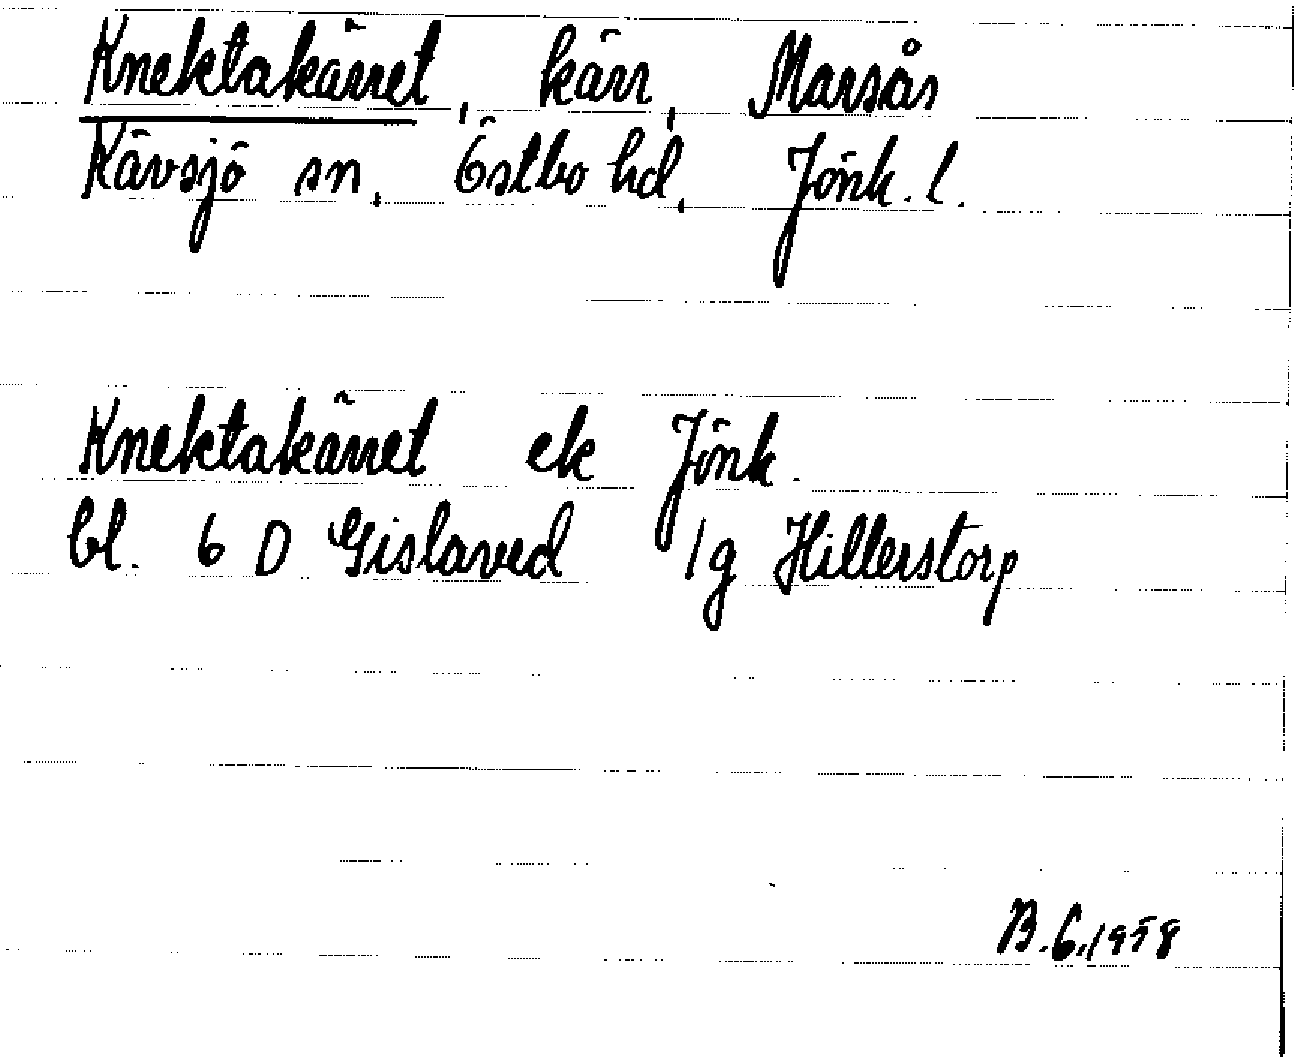 Knektakärret, kärr, Marsås
Kävsjö sn, Östbo hd, Jönk. l.
Knektakärret ek Jönk.
bl. 6 D Gislaved 1g Hillerstorp
B.G. 1958